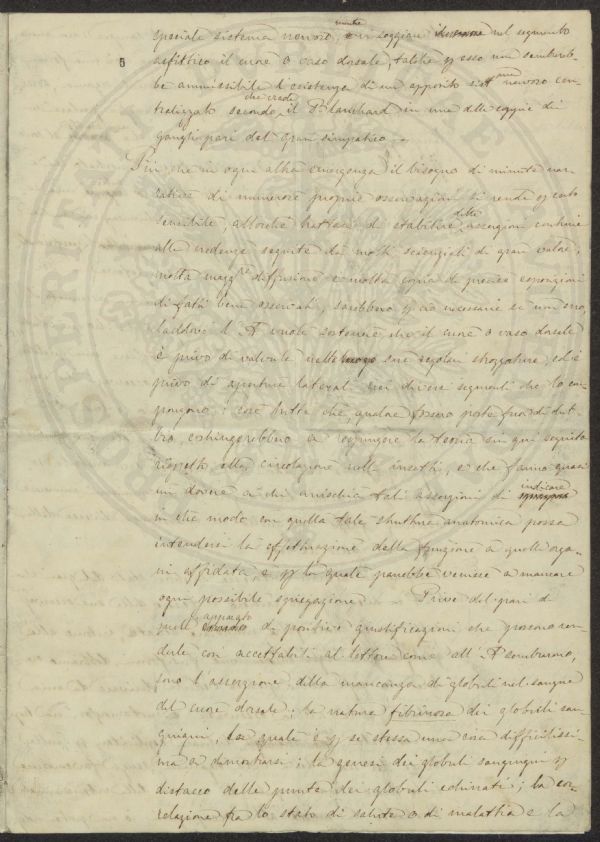 speciale sistema nervoso, mentre soggiace nel segmento
asfittico il cuore o vaso dorsale, talchè per esso non sembreb-
be ammissibile l'esistenza di un apposito sistema nervoso cen-
tralizzato secondo che crede il Blanchard in una delle coppie di
gangli pari del gran simpatico.
5
Più che in ogni altra emergenza il bisogno di minuta nar-
ratrice di numerose proprie osservazioni si rende per certo
sensibile, allorchè trattasi di stabilire delle asserzioni contrarie
alle credenze seguite da molti scienziati di gran valore;
molta maggre diffusione e molta copia di precise esposizioni
di fatti bene osservati, sarebbero perciò necessarie se non erro,
laddove l'A vuole sostenere che il cuore o vaso dorsale
è privo di valvole nelle sue regolari strozzature, ed è
privo di aperture laterali nei diversi segmenti che lo com-
pongono: cose tutte che, qualora fossero poste fuori di dub-
bio, costringerebbero a respingere la teoria fin qui seguita
rispetto alla circolazione nelli insetti, e che fanno quasi
un dovere a chi arrischia tali asserzioni di indicare
in che modo con quella tale struttura anatomica possa
intendersi la effettuazione della funzione a quelli orga-
ni affidata, e per la quale parrebbe venisse a mancare
ogni possibile spiegazione Prive del pari di
quell' appoggio di positive giustificazioni che possono ren-
derle così accettabili al lettore come all'A sembrarono,
sono l'asserzione della mancanza di globuli nel sangue
del cuore dorsale; la natura fibrinosa dei globuli san-
guigni, la quale è per se stessa una cosa difficilissi-
ma a dimostrarsi; la genesi dei globuli sanguigni per
distacco delle punte dei globuli echinati; la cor-
relazione fra lo stato di salute o di malattia e la